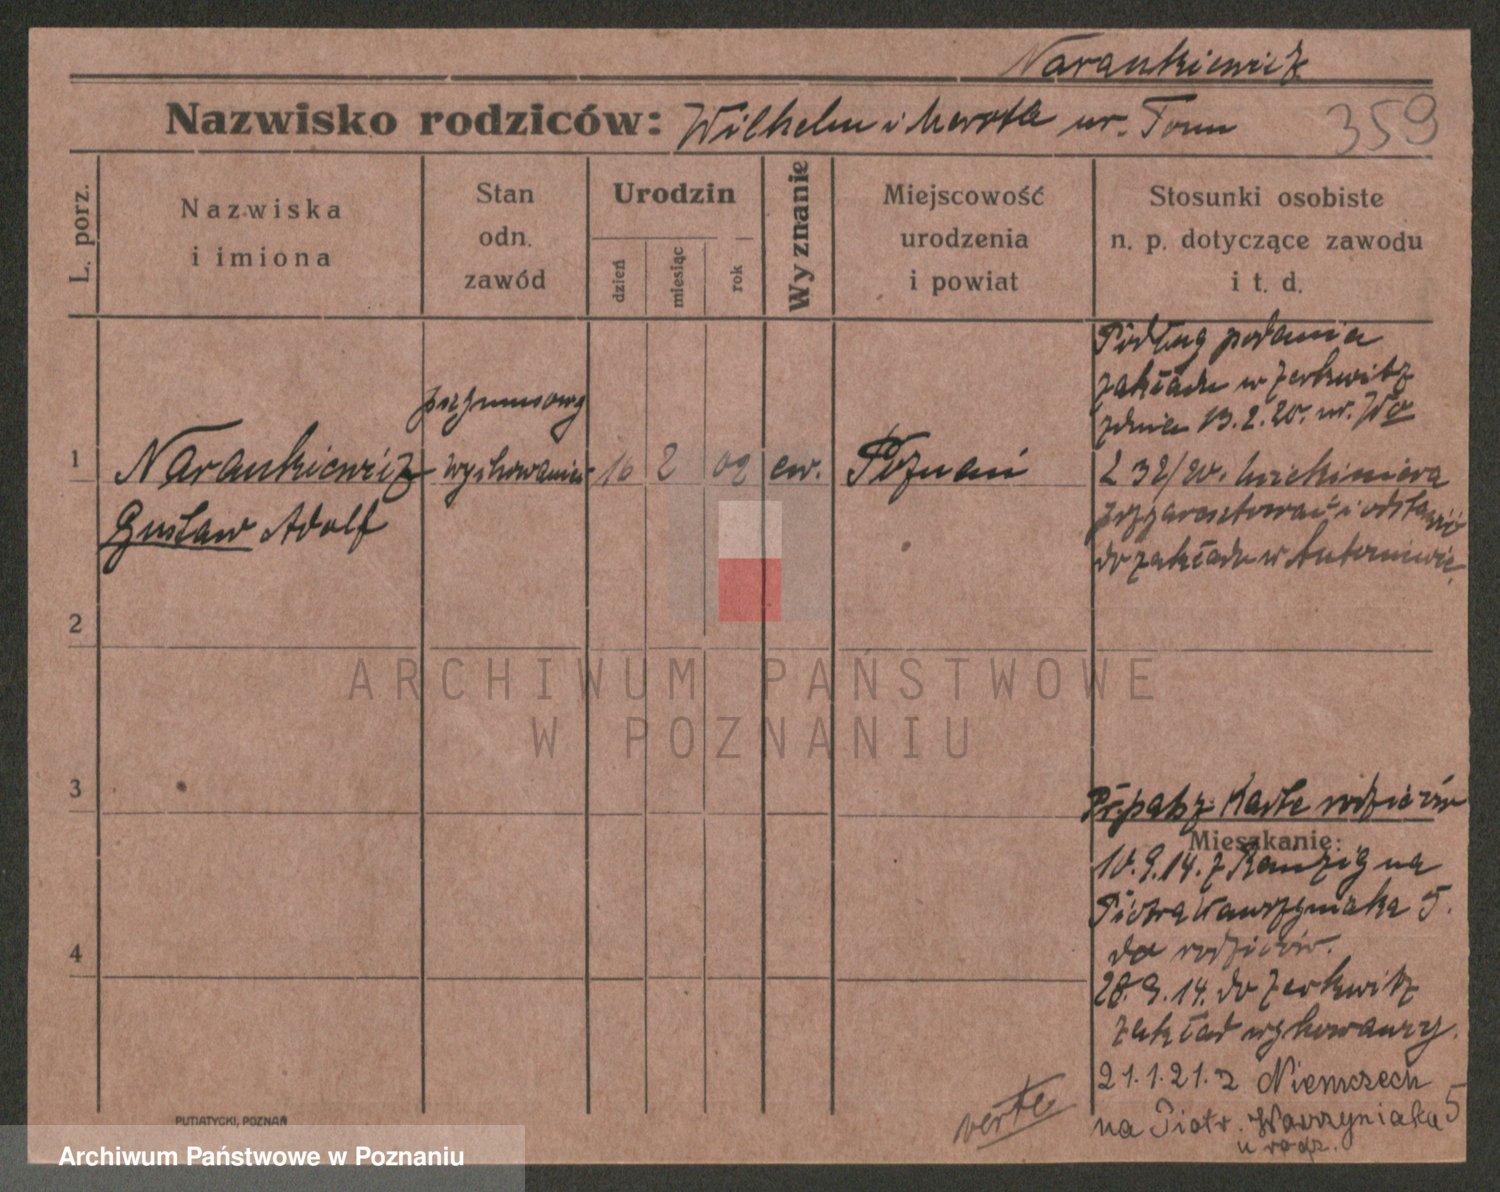 Narankiewicz
Nazwisko rodziców: Wilhelm i Marta ur. Tonn
359
L. porz.
Nazwiska
i imiona
Stan
odn.
zawód
Urodzin
dzień
miesiąc
rok
Wyznanie
Miejscowość
urodzenia
i powiat
Stosunki osobiste
n. p. dotyczące zawodu
i t. d.
Podług podania
zakładu w Zerkwitz
z dnia 13.2.20. nr.
L 32/20.
przyaresztować i odstawić
do zakładu w Antoniewie
przymusowy
1 Narankiewicz wychowaniec 16 2 02 ew. Poznań
Gustaw Adolf
2
3
4
ARCHIWUM PAŃSTWOWE
W POZNANIU
Karte rodziców
Mieszkanie:
10.9.14. z na
Piotra Wawrzyniaka 5.
do rodziców.
28.9.14. do Zerkwitz
zakład wychowawczy.
21.1.21. z Niemczech
na Piotr. Wawrzyniaka 5
u rodz.
verte
PUTIATYCKI, POZNAŃ
Archiwum Państwowe w Poznaniu